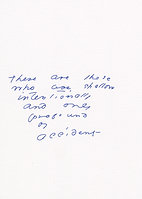 these are those
who are shallow
intentionally
and only
profound
by
accident